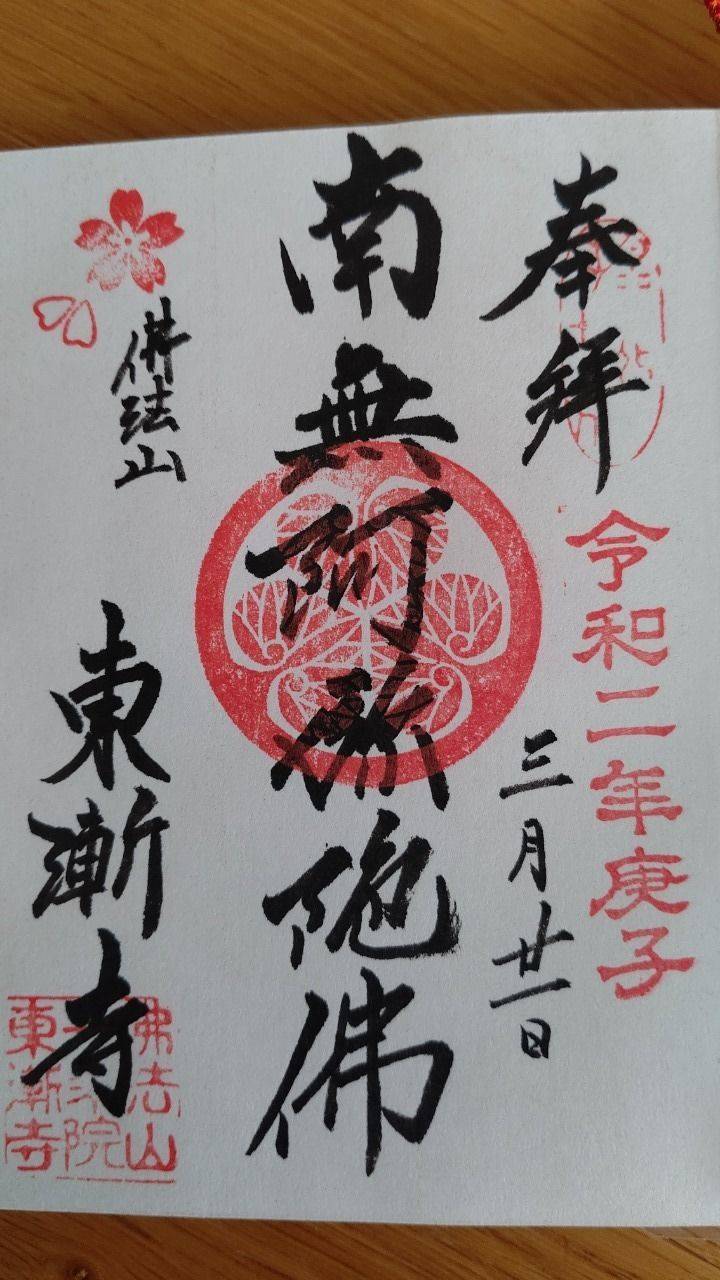 奉拝
令和二年庚子
三月廿一日
南無阿弥陀佛
佛法山
東漸寺
佛法山
東漸寺